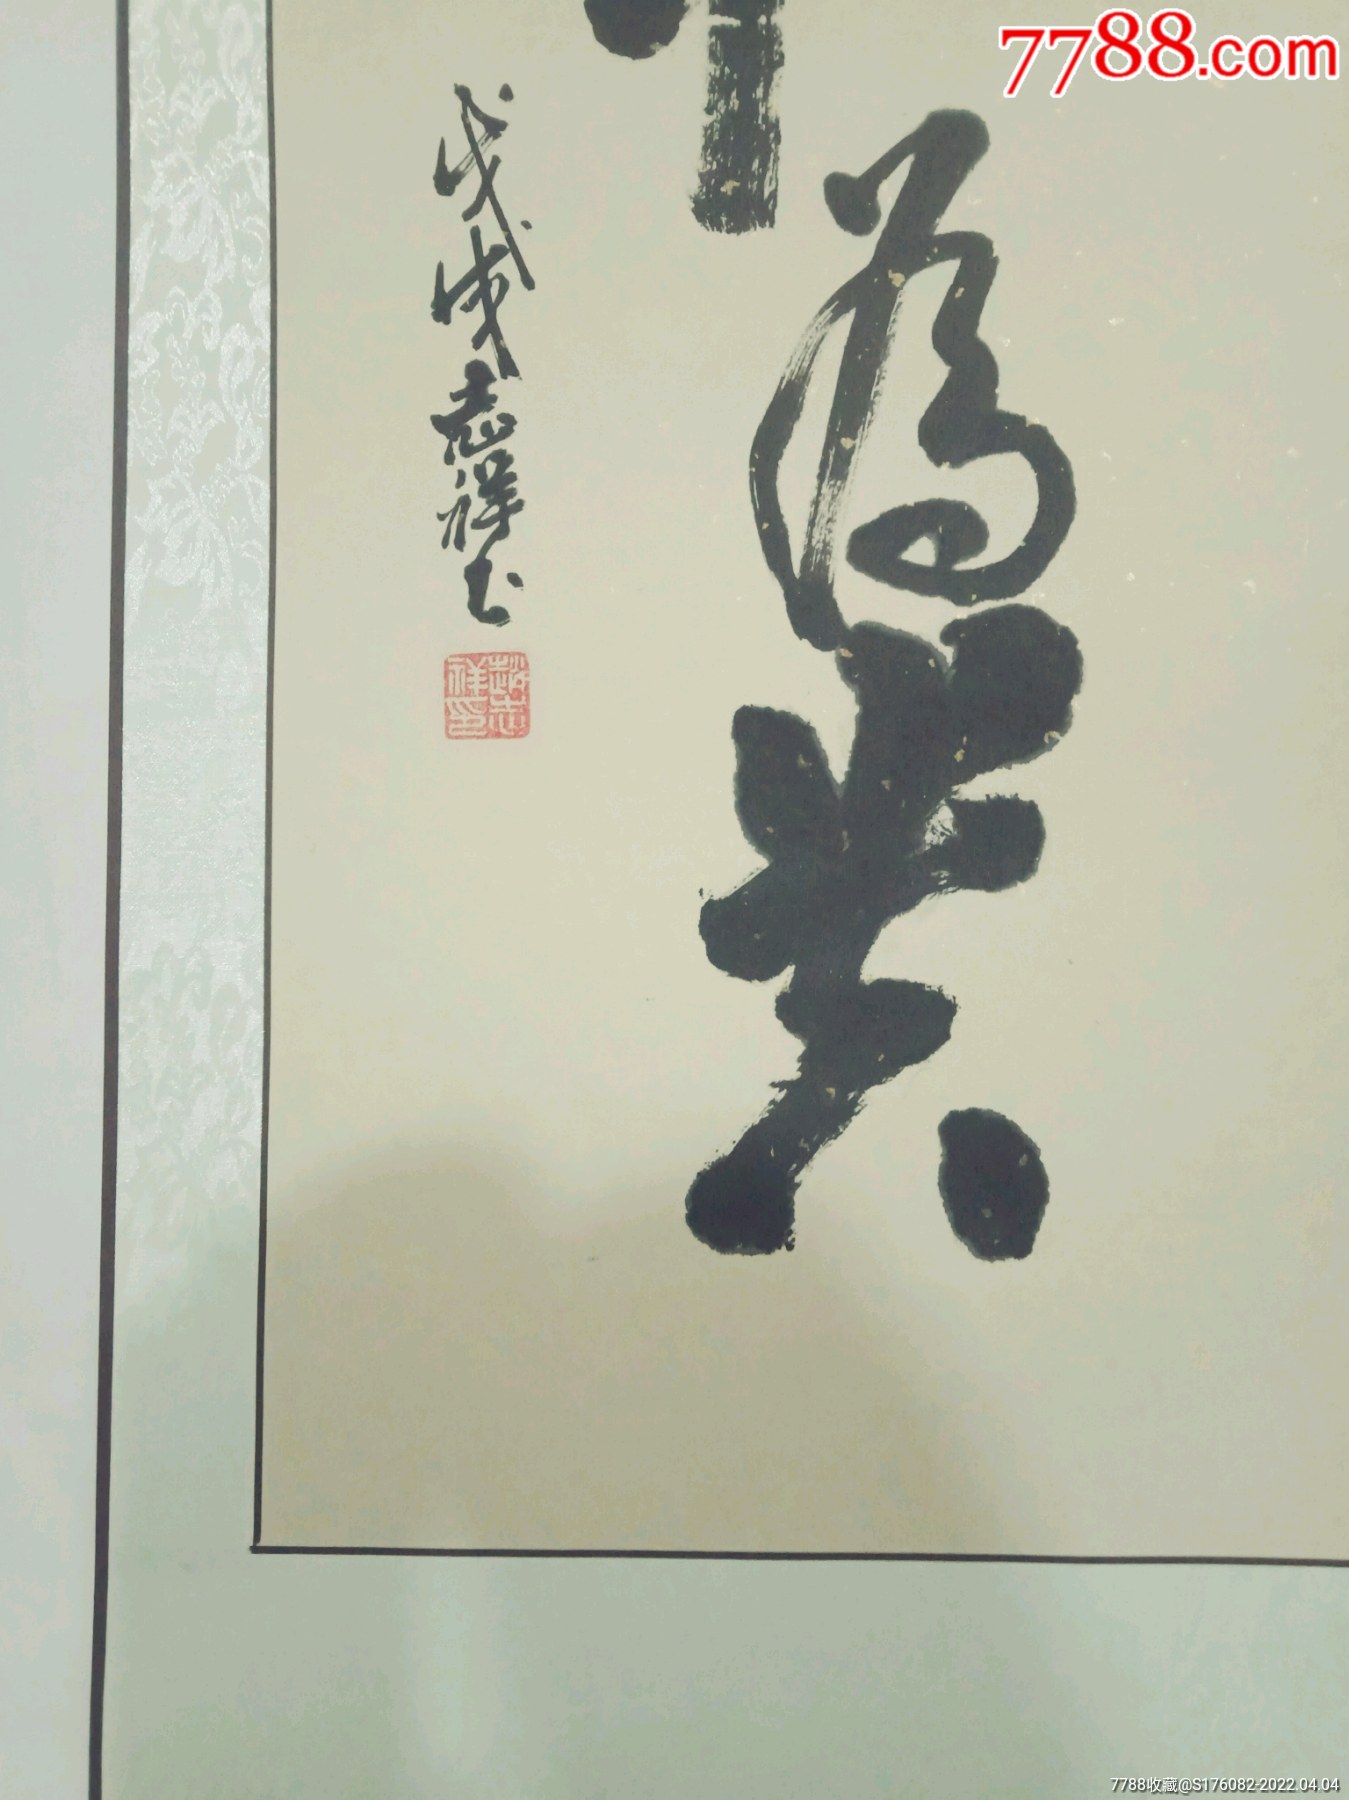 7788.com
為
貴
戊戌志祥书
趙志祥印
7788收藏@S176082-2022.04.04